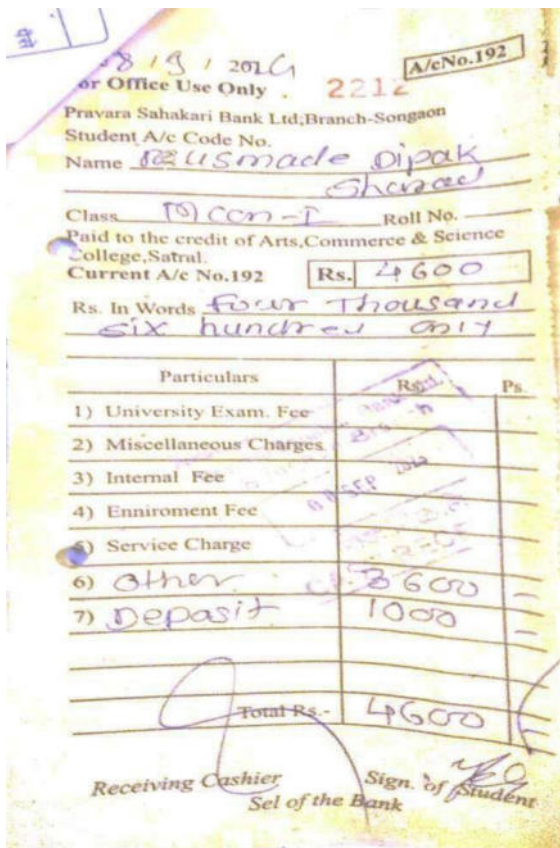 8 / 9 / 202
A/cNo.192
or Office Use Only . 2212
Pravara Sahakari Bank Ltd;Branch-Songaon
Student A/c Code No.
Name Dipak
Sharad
Class M com-I Roll No.
Paid to the credit of Arts,Commerce & Science
College,Satral.
Current A/c No.192 Rs. 4600
Rs. In Words Four Thousand
six hundred only
Particulars Rs. Ps.
1) University Exam. Fee
2) Miscellaneous Charges
3) Internal Fee
4) Enniroment Fee
5) Service Charge
6) Other 3600 =
7) Deposit 1000 =
Total Rs.- 4600
Receiving Cashier Sign. of Student
Sel of the Bank
SEP